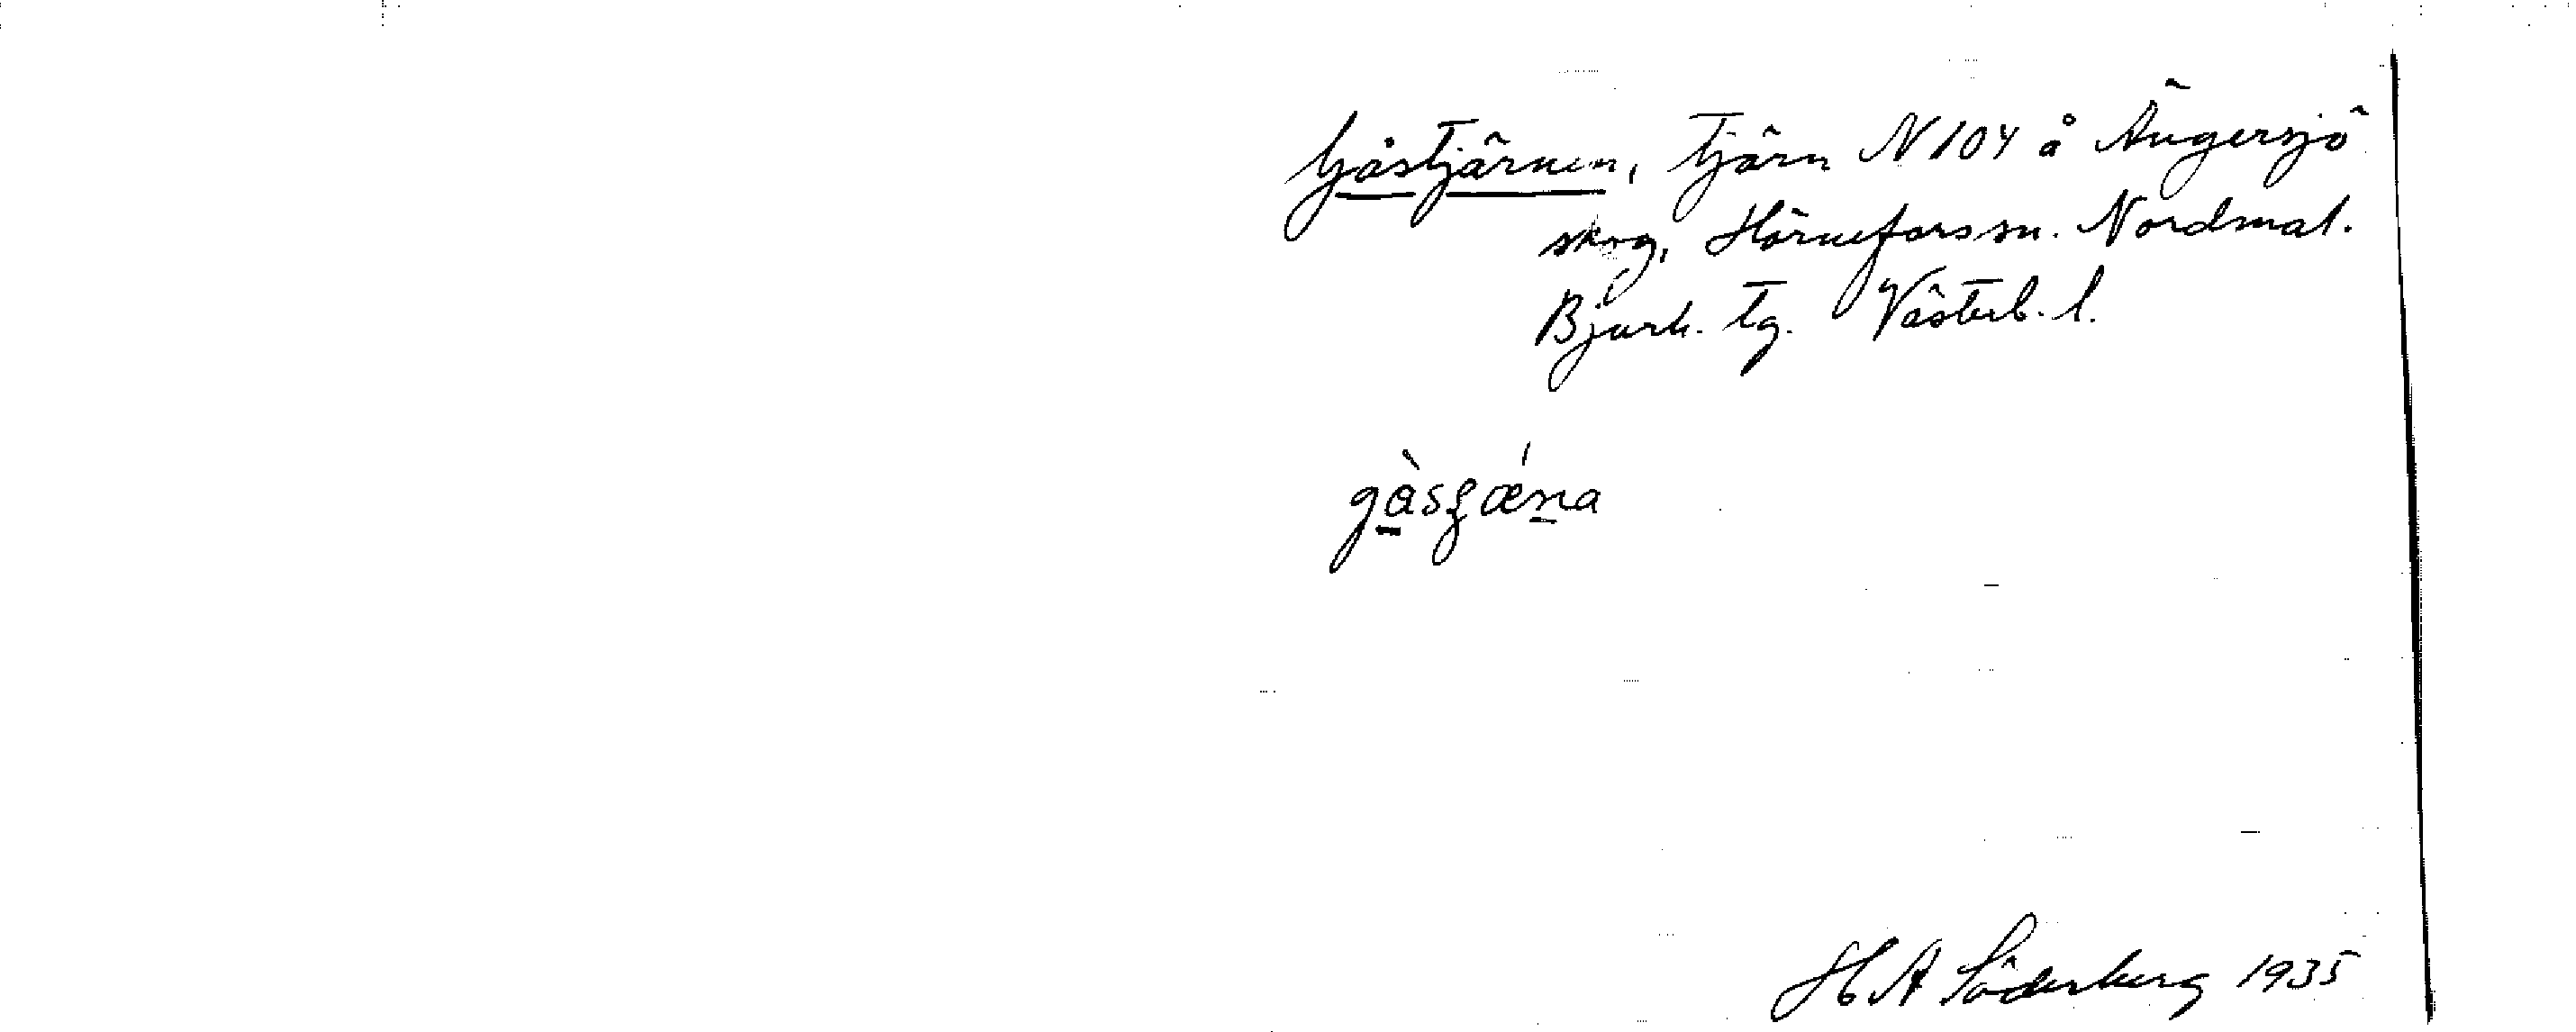 Gåstjärnen, tjärn N 104 å Ängersjö
skog, Hörnefors sn. Nordmal.
Bjurh. tg. Västerb. l.
H A Söderberg 1935